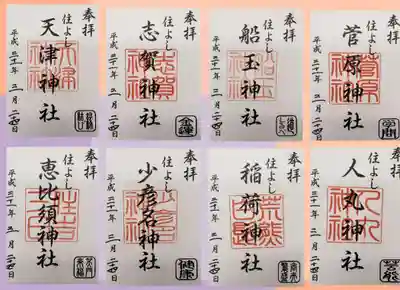 奉拝
住よし
天津神社
平成三十一年三月二十四日
奉拝
住よし
志賀神社
平成三十一年三月二十四日
金運
奉拝
住よし
船玉神社
平成三十一年三月二十四日
奉拝
住よし
菅原神社
平成三十一年三月二十四日
学問
奉拝
住よし
恵比須神社
平成三十一年三月二十四日
奉拝
住よし
少彦名神社
平成三十一年三月二十四日
健康
奉拝
住よし
稲荷神社
平成三十一年三月二十四日
奉拝
住よし
人丸神社
平成三十一年三月二十四日
芸能